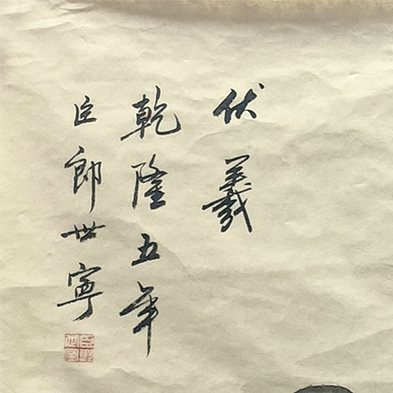 伏羲
乾隆五年
臣郎世寧